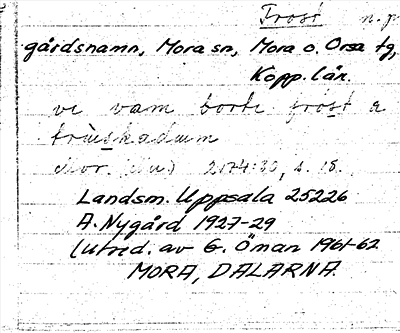 Frost n. p
gårdsnamn, Mora sn, Mora o. Orsa tg,
Kopp. län.
vi vam borti frost a
2174:30, s. 18.
Landsm. Uppsala 25226
A. Nygård 1927-29
(utred. av E. Öman 1961-62
MORA, DALARNA